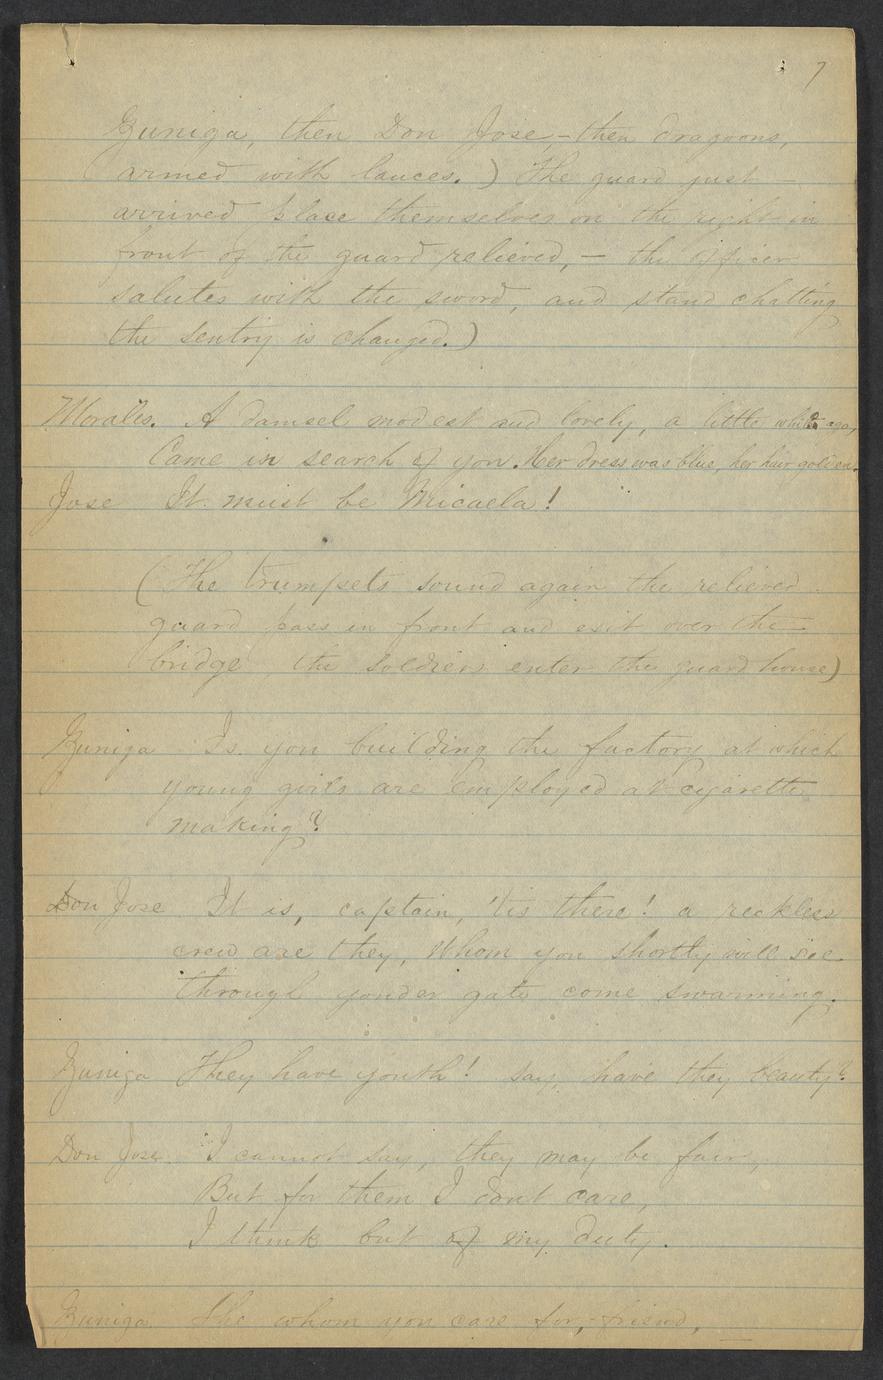 7
Zuniga, then Don Jose, - then dragoons,
armed with lances.) The guard just -
arrived place themselves on the right in
front of the guard relieved, - the officer
salutes with the sword, and stand chatting
the sentry is changed.)
Morales. A damsel modest and lovely, a little while ago,
Came in search of you. Her dress was blue, her hair golden.
Jose It must be Micaela!
(The trumpets sound again the relieved
guard pass in front and exit over the -
bridge, the soldiers enter the guard house)
Zuniga Is yon building the factory at which
young girls are employed at cigarette
making?
Don Jose It is, captain, 'tis there! a reckless
crew are they, Whom you shortly will see
through yonder gate come swarming.
Zuniga They have youth! say, have they beauty?
Don Jose. I cannot say, they may be fair,
But for them I dont care,
I think but of my duty.
Zuniga She whom you care for, friend, -